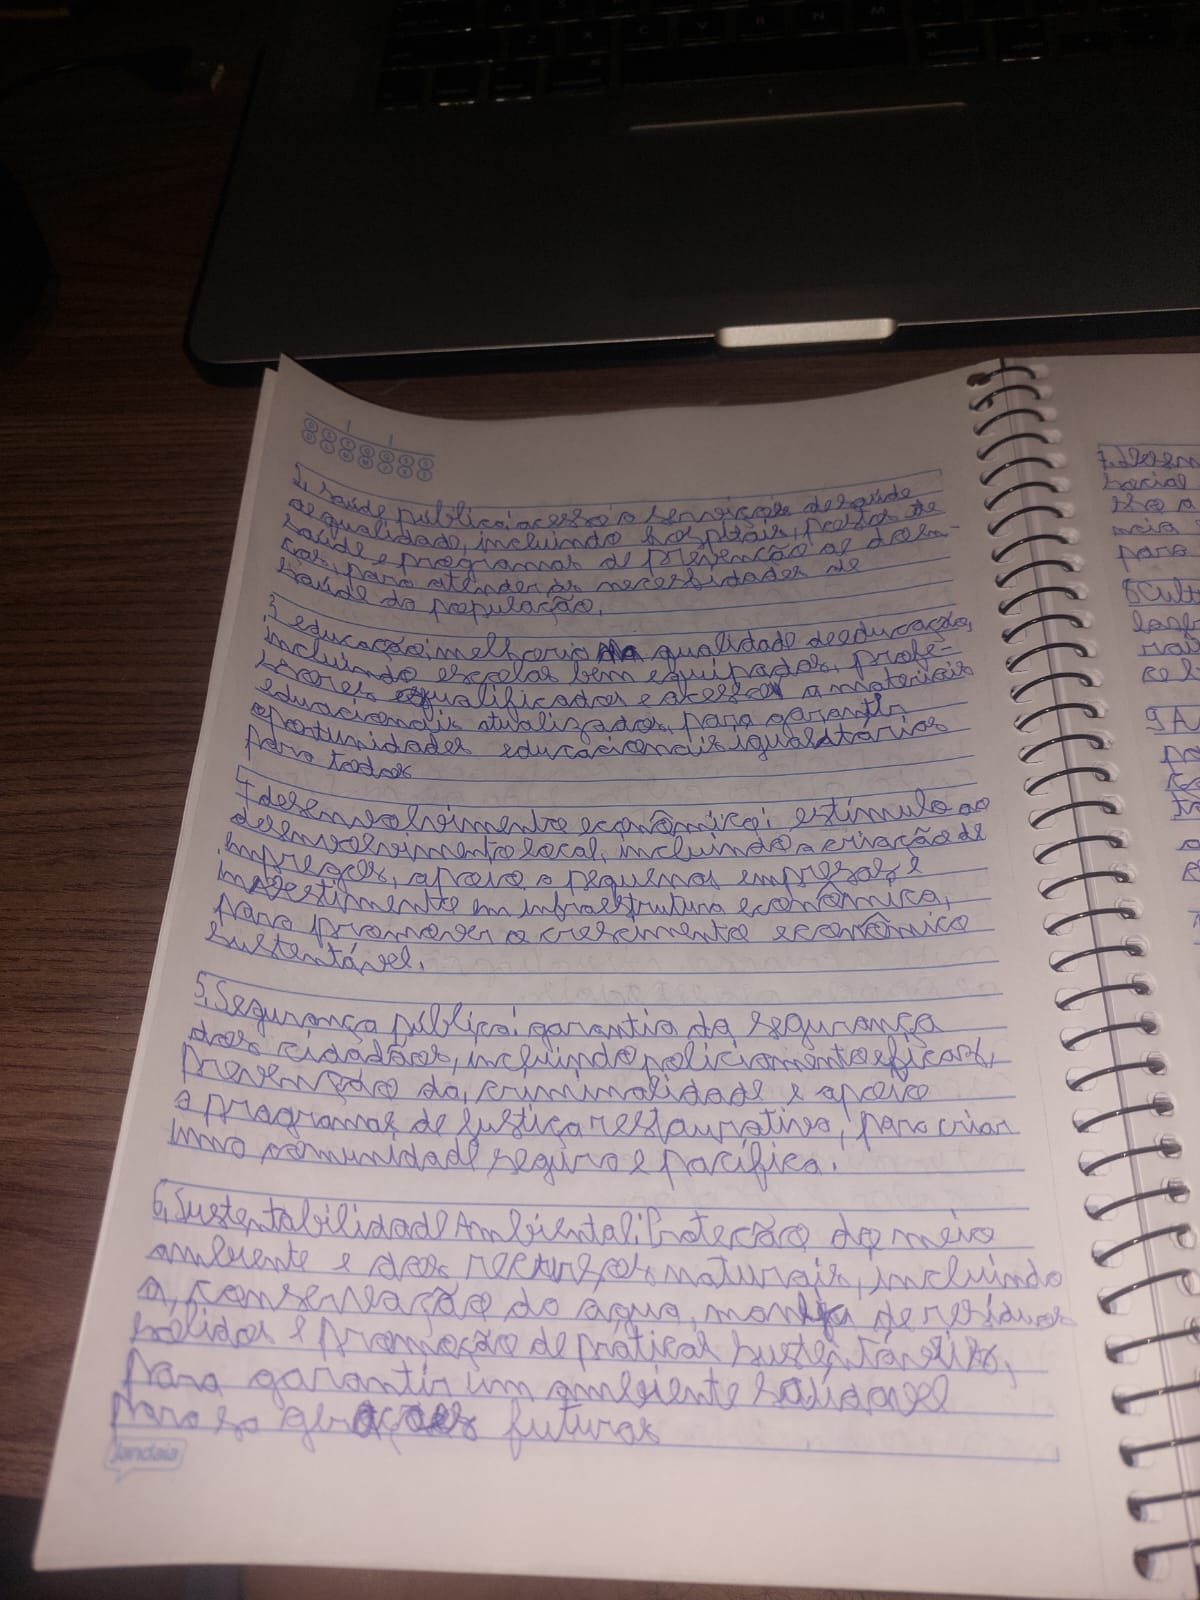 2. Saúde pública: acesso a serviços de saúde
de qualidade, incluindo hospitais, postos de
saúde e programas de prevenção de doen-
ças, para atender às necessidades de
saúde da população.
3 educação: melhoria na qualidade de educação,
incluindo escolas bem equipadas, profe-
ssores qualificados e acesso a materiais
educacionais atualizados, para garantir
oportunidades educacionais igualitárias
para todos
4 desenvolvimento econômico: estímulo ao
desenvolvimento local, incluindo a criação de
impregos, apoio a pequenas empresas e
investimento em infraestrutura econômica,
para promover o crescimento econômico
sustentável.
5. Segurança pública: garantia da segurança
dos cidadãos, incluindo policiamento eficaz,
prevenção da criminalidade e apoio
a programas de justiça restaurativa, para criar
uma comunidade segura e pacífica.
6. Sustentabilidade Ambiental: Proteção do meio
ambiente e dos recursos naturais, incluindo
a conservação da água, de resíduos
sólidos e promoção de práticas sustentáveis,
para garantir um ambiente saudável
para as gerações futuras
jandaia
7. Desem
social
para
8 Cult
9 A